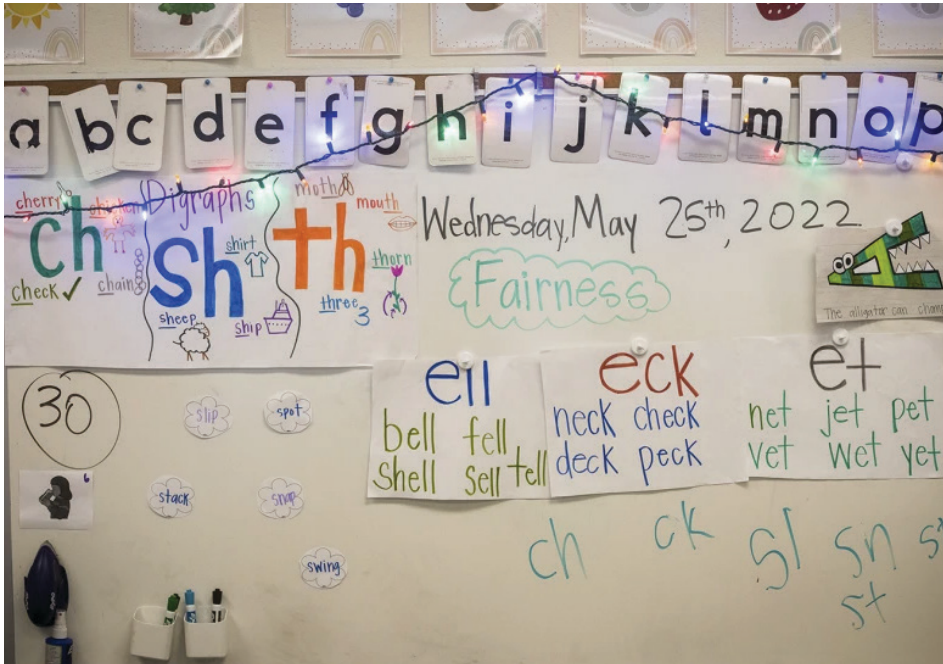 a b c d e f g h i j k l m n o p
Digraphs
ch
cherry
chicken
check
chain
sh
shirt
sheep
ship
th
moth
mouth
thorn
three 3
Wednesday, May 25th, 2022
Fairness
The alligator can
30
6
slip
spot
stack
snap
swing
ell
bell fell
shell sell tell
eck
neck check
deck peck
et
net jet pet
vet wet yet
ch ck sl sn
st